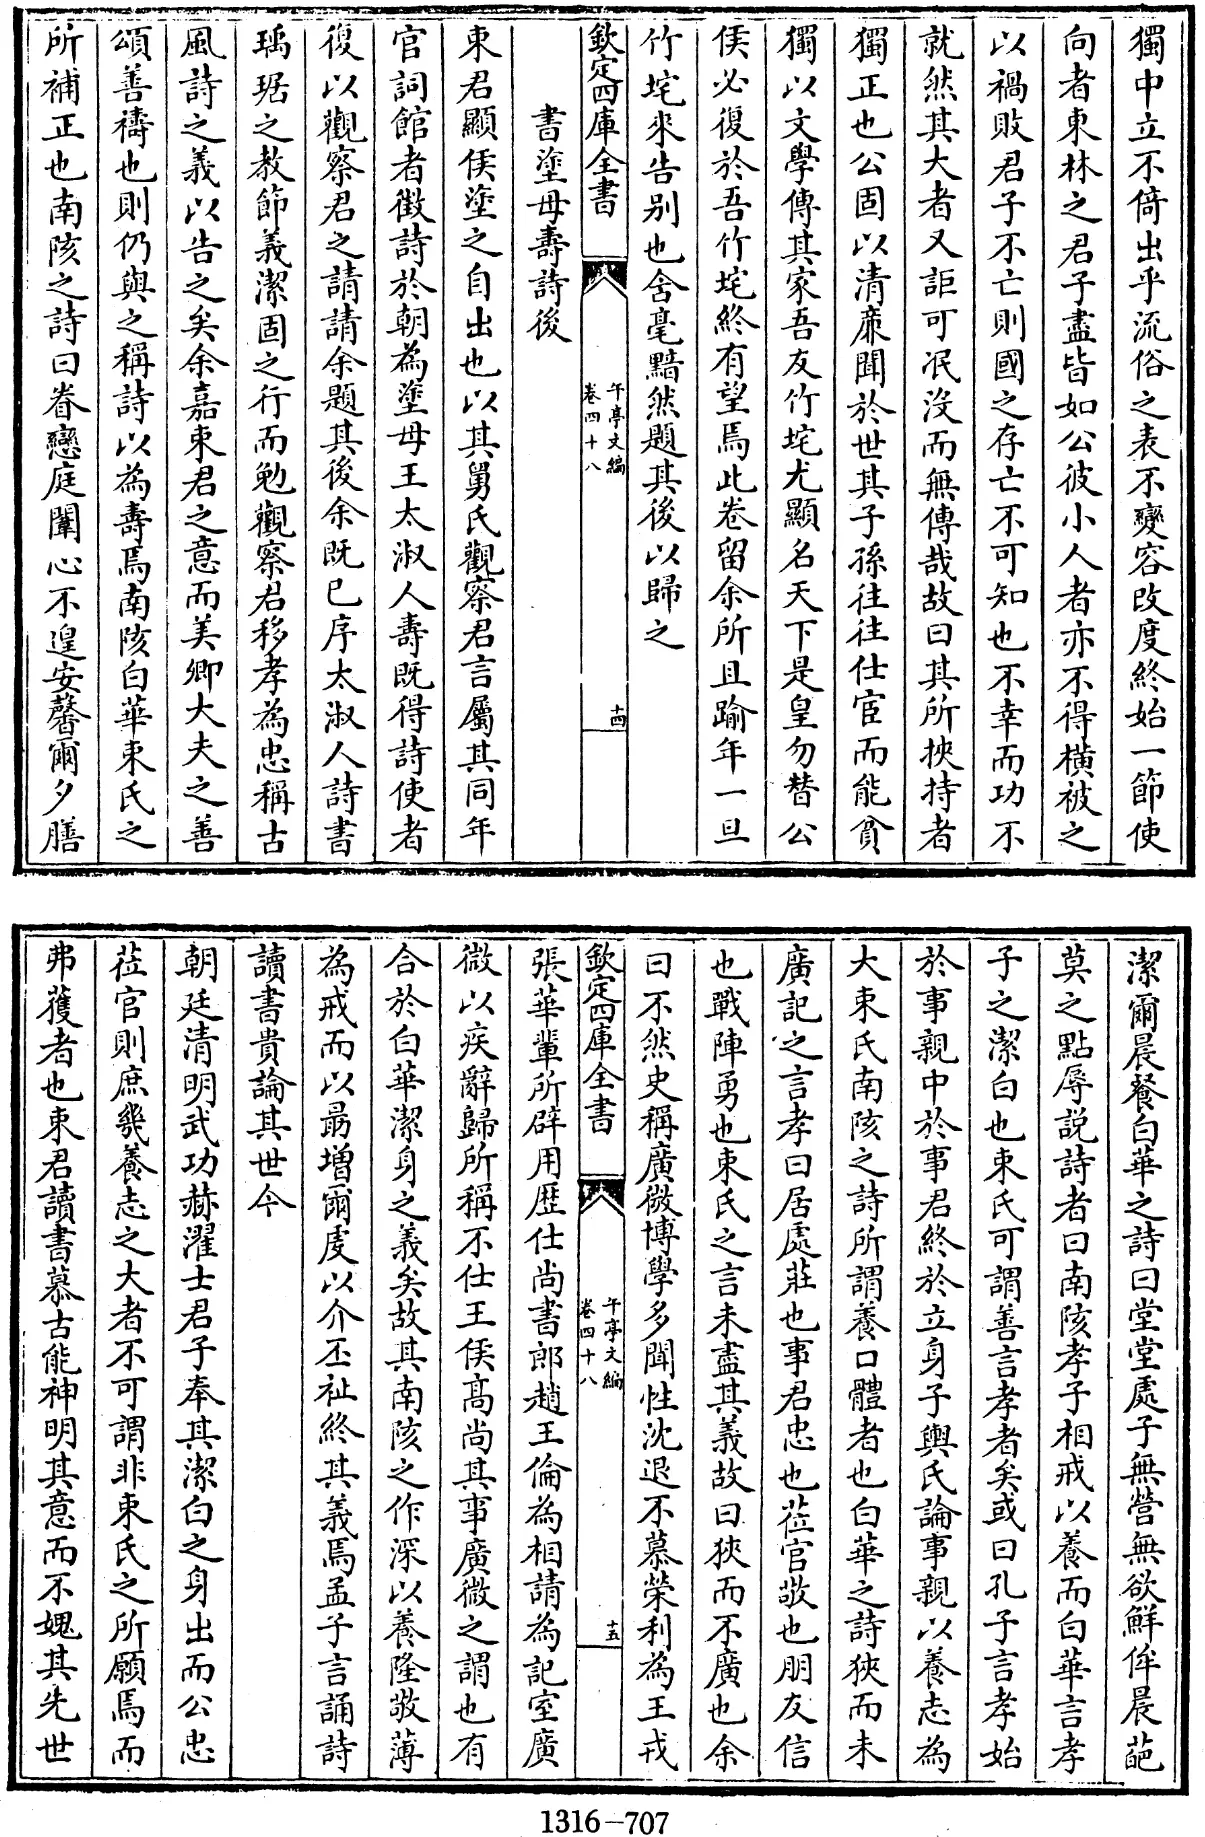 獨中立不倚出乎流俗之表不變容改度終始一節使
向者東林之君子盡皆如公彼小人者亦不得橫被之
以禍敗君子不亡則國之存亡不可知也不幸而功不
就然其大者又詎可泯沒而無傳哉故曰其所挾持者
獨正也公固以清亷聞於世其子孫往往仕宦而能貧
獨以文學傳其家吾友竹垞尤顯名天下是皇勿替公
侯必復於吾竹垞終有望焉此卷留余所且踰年一旦
竹垞來告别也舍毫黯然題其後以歸之
欽定四庫全書
午亭文編
卷四十八
十四
書塗母壽詩後
束君顯侯塗之自出也以其舅氏觀察君言屬其同年
官詞館者徴詩於朝為塗母王太淑人壽既得詩使者
復以觀察君之請請余題其後余既已序太淑人詩書
瑀琚之教節義潔固之行而勉觀察君移孝為忠稱古
風詩之義以告之矣余嘉束君之意而美卿大夫之善
頌善禱也則仍與之稱詩以為壽焉南陔白華束氏之
所補正也南陔之詩曰眷戀庭闈心不遑安馨爾夕膳
潔爾晨餐白華之詩曰堂堂處子無營無欲鮮侔晨葩
莫之點辱説詩者曰南陔孝子相戒以養而白華言孝
子之潔白也束氏可謂善言孝者矣或曰孔子言孝始
於事親中於事君終於立身子輿氏論事親以養志為
大束氏南陔之詩所謂養口體者也白華之詩狹而未
廣記之言孝曰居處莊也事君忠也蒞官敬也朋友信
也戰陣勇也束氏之言未盡其義故曰狹而不廣也余
曰不然史稱廣微博學多聞性沈退不慕榮利為王戎
欽定四庫全書
午亭文編
卷四十八
十五
張華輩所辟用歴仕尚書郎趙王倫為相請為記室廣
微以疾辭歸所稱不仕王侯髙尚其事廣微之謂也有
合於白華潔身之義矣故其南陔之作深以養隆敬薄
為戒而以朂增爾虔以介丕祉終其義焉孟子言誦詩
讀書貴論其世今
朝廷清明武功赫濯士君子奉其潔白之身出而公忠
蒞官則庶幾養志之大者不可謂非束氏之所願焉而
弗蒦者也束君讀書慕古能神明其意而不媿其先世
1316-707